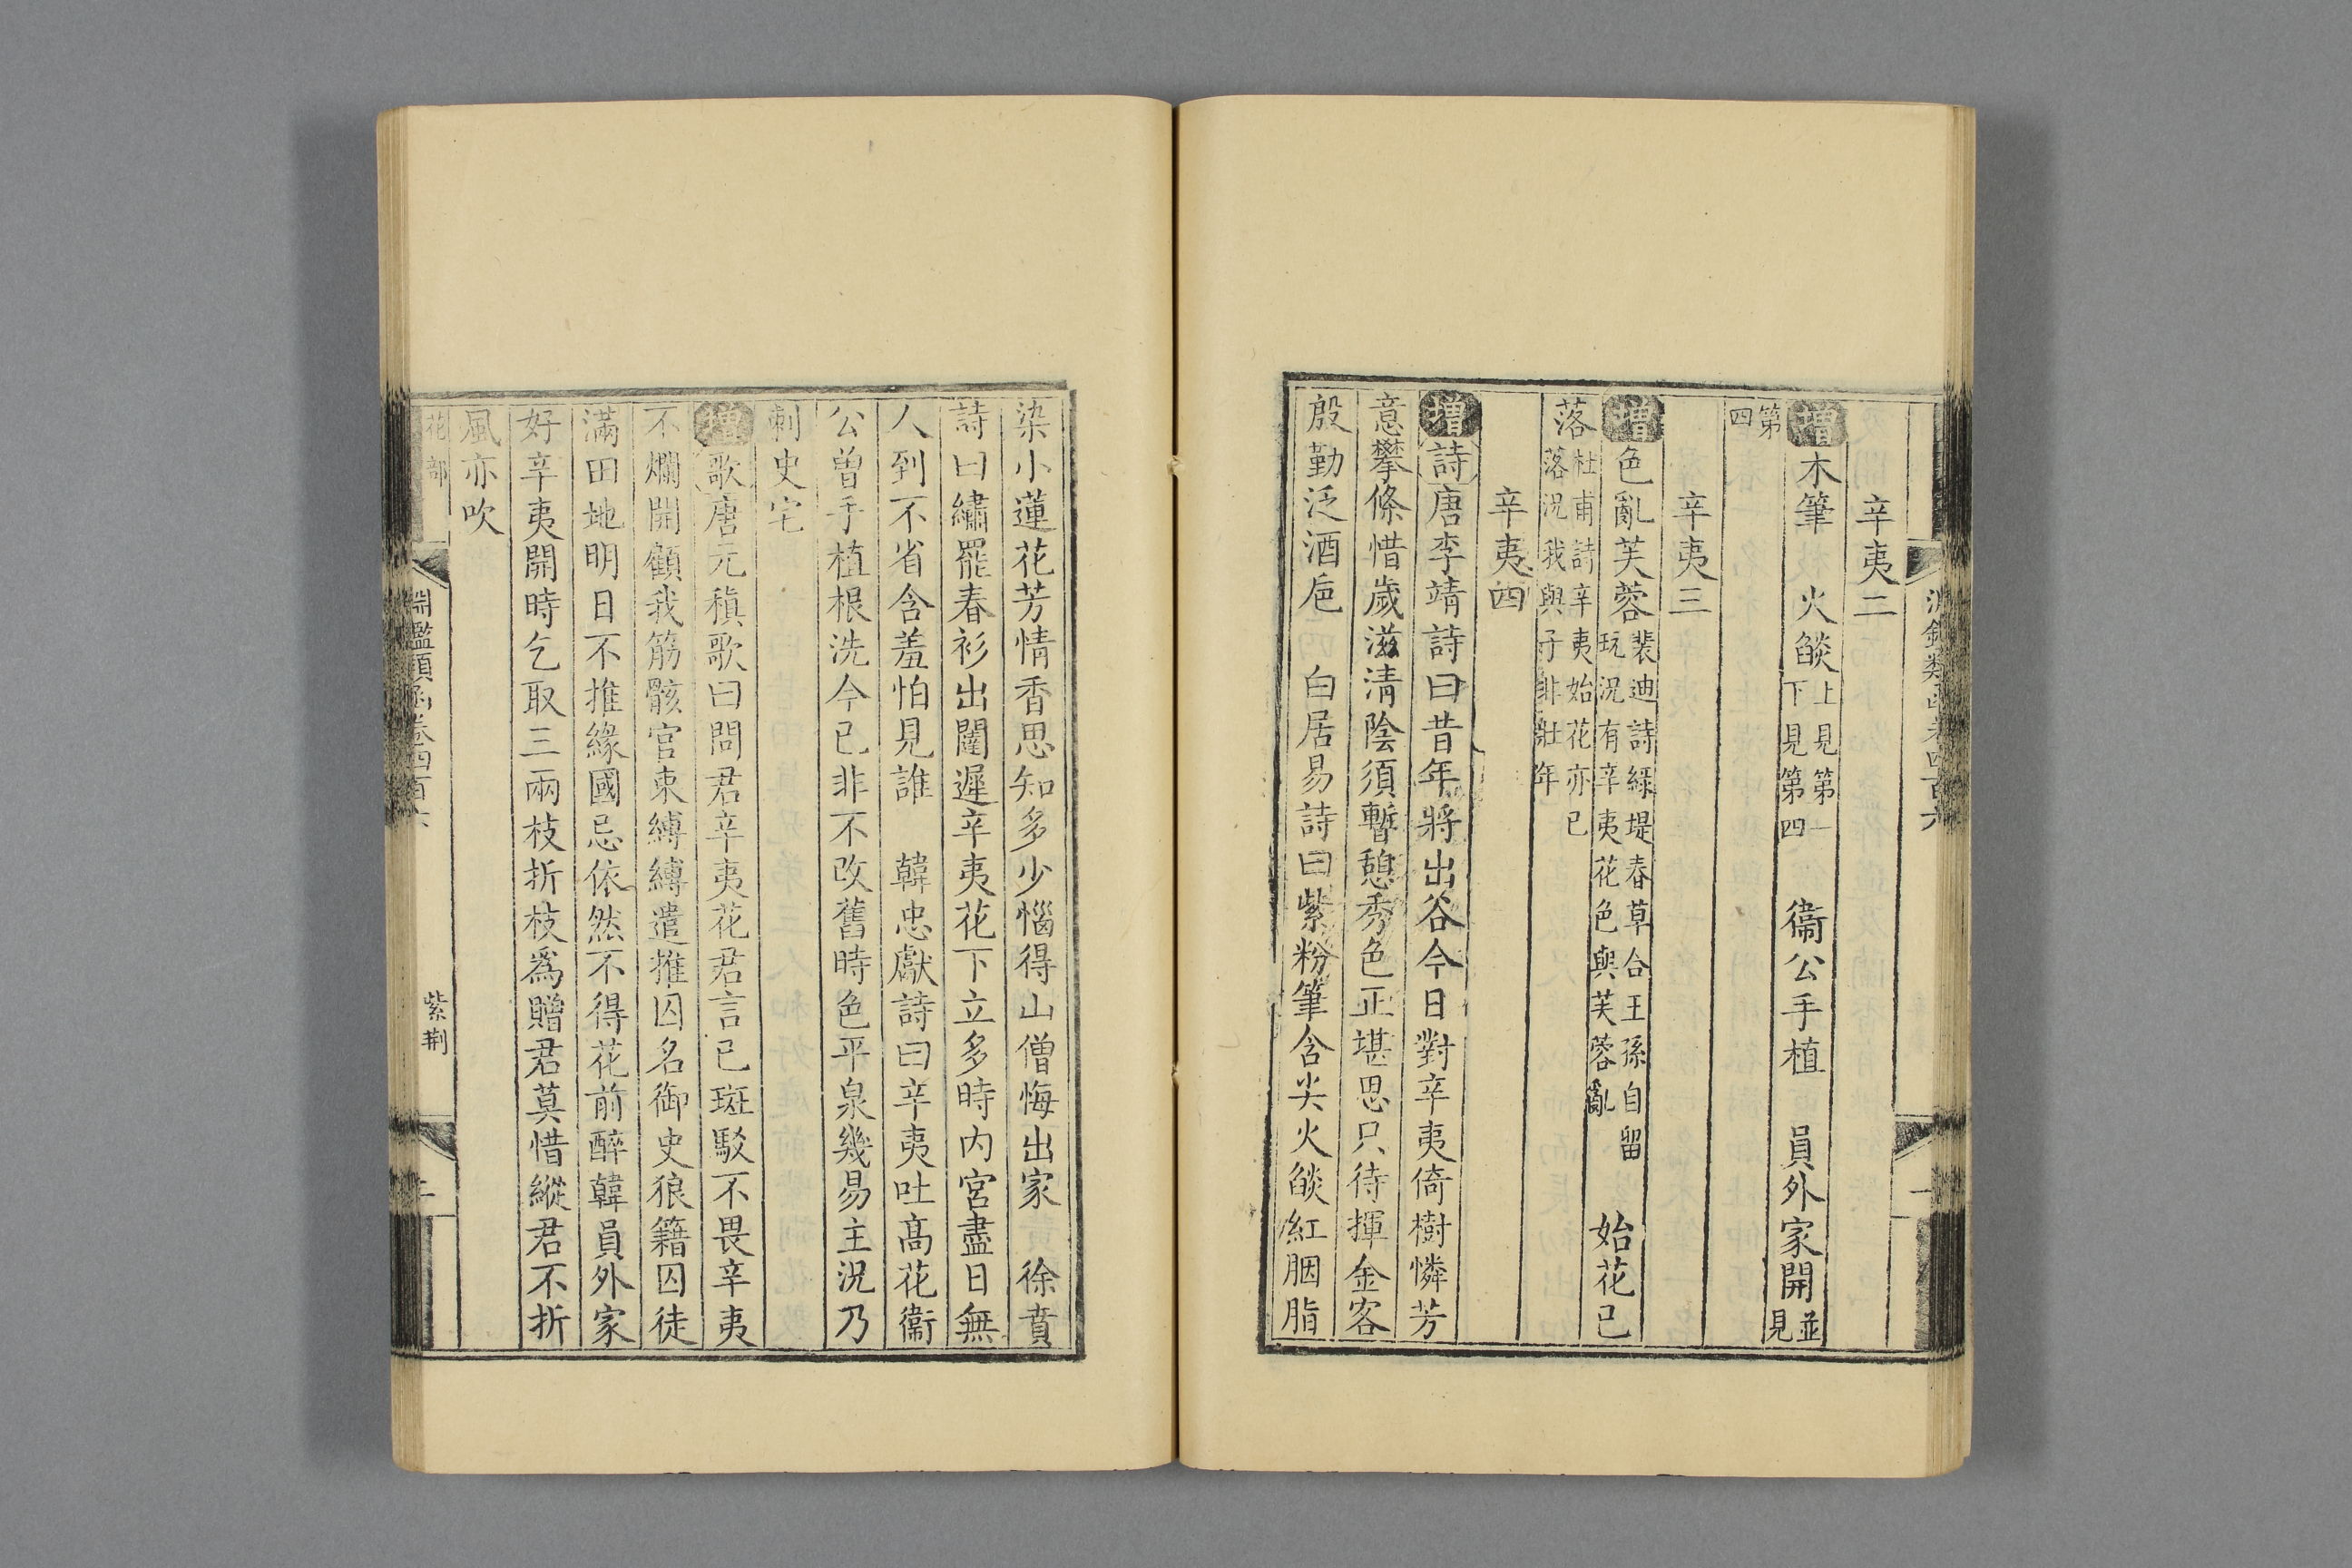 淵鑑類函卷四百六
一
辛夷二
增木筆 火燄上見第一下見第四 衞公手植 員外家開並見
第四
辛夷三
增色亂芙蓉裴迪詩綠堤春草合王孫自留玩況有辛夷花色與芙蓉亂 始花已
落杜甫詩辛夷始花亦已落況我與子非壯年
辛夷四
增詩唐李靖詩曰昔年將出谷今日對辛夷倚樹憐芳
意攀條惜歲滋清陰須暫憩秀色正堪思只待揮金客
殷勤泛酒巵 白居易詩曰紫粉筆含尖火燄紅胭脂
染小蓮花芳情香思知多少惱得山僧悔出家 徐賁
詩曰繡罷春衫出閣遲辛夷花下立多時内宮盡日無
人到不省含羞怕見誰 韓忠獻詩曰辛夷吐高花衞
公曾手植根洗今已非不改舊時色平泉幾易主況乃
刺史宅
增歌唐元稹歌曰問君辛夷花君言已斑駁不畏辛夷
不爛開顧我筋骸官束縛縛遣推囚名御史狼籍囚徒
滿田地明日不推緣國忌依然不得花前醉韓員外家
好辛夷開時乞取三兩枝折枝爲贈君莫惜縱君不折
風亦吹
花部
淵鑑類函卷四百六
紫荆
二